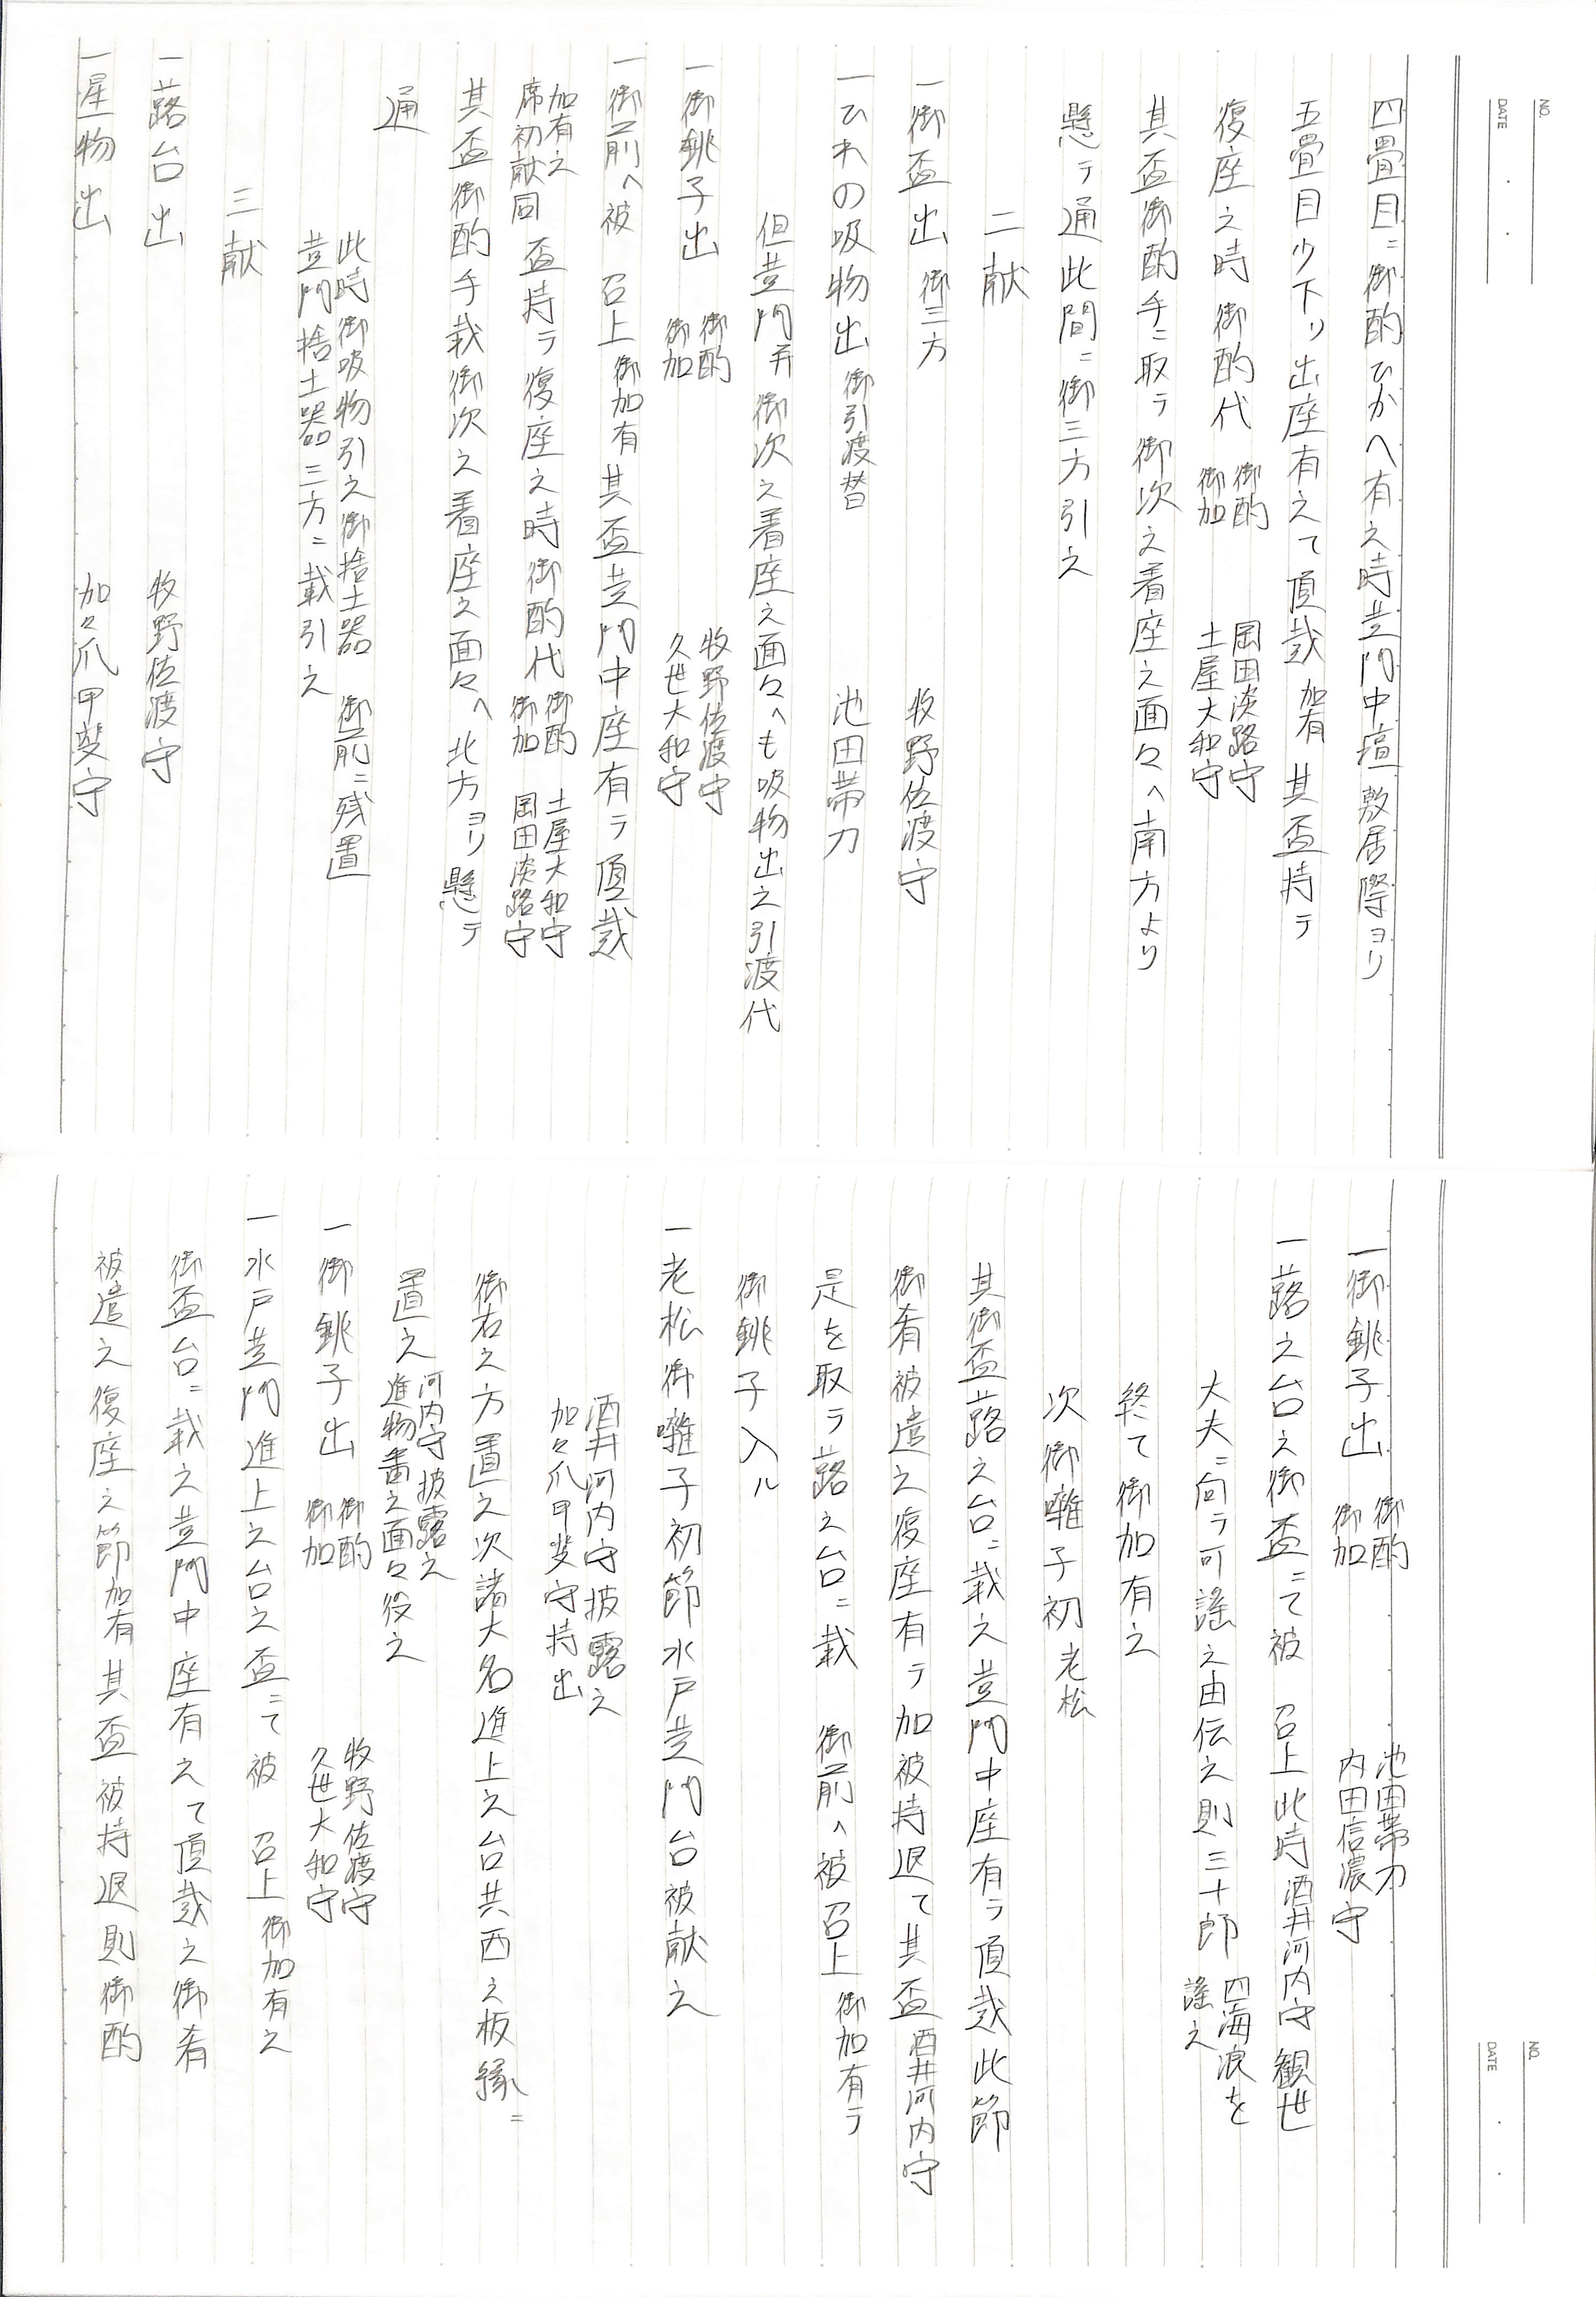 NO.
DATE
四畳目ニ御酌ひかへ有之時䒑門中壇敷居際ヨリ
五畳目少下リ出座有之て頂戴 加有 其盃持テ
復座之時 御酌代 御酌 岡田淡路守
御加 土屋大和守
其盃御酌手ニ取テ御次之着座之面々へ南方より
懸テ通此間ニ御三方引之
二献
一御盃出 御三方 牧野佐渡守
一ひれの吸物出 御引渡替 池田帯刀
但䒑門并御次之着座之面々へも吸物出之引渡代
一御銚子出 御酌 牧野佐渡守
御加 久世大和守
一御前へ被 召上 御加有 其盃䒑門中座有テ頂戴
加有之
席初献同 盃持テ復座之時御酌代 御酌 土屋大和守
御加 岡田淡路守
其盃御酌手載御次之着座之面々へ北方ヨリ懸テ
通
此時御吸物引之御捨土器 御前ニ残置
䒑門捨土器三方ニ載引之
三献
一蕗台出 牧野佐渡守
一星物出 加々爪甲斐守
NO.
DATE
一御銚子出 御酌 池田帯刀
御加 内田信濃守
一蕗之台之御盃ニて被 召上此時酒井河内守観世
大夫ニ向テ可謡之由伝之則三十郎 四海浪を
謡之
終て御加有之
次御囃子初 老松
其御盃蕗之台ニ載之䒑門中座有テ頂戴此節
御肴被遣之復座有テ加被持退て其盃酒井河内守
是を取テ蕗之台ニ載 御前へ被召上 御加有テ
御銚子入ル
一老松御囃子初節水戸䒑門台被献之
酒井河内守披露之
加々爪甲斐守持出
御右之方置之次諸大名進上之台共西之板縁ニ
置之 河内守披露之
進物番之面々役之
一御銚子出 御酌 牧野佐渡守
御加 久世大和守
一水戸䒑門進上之台之盃ニて被 召上 御加有之
御盃台ニ載之䒑門中座有之て頂戴之御肴
被遣之復座之節加有其盃被持退則御酌